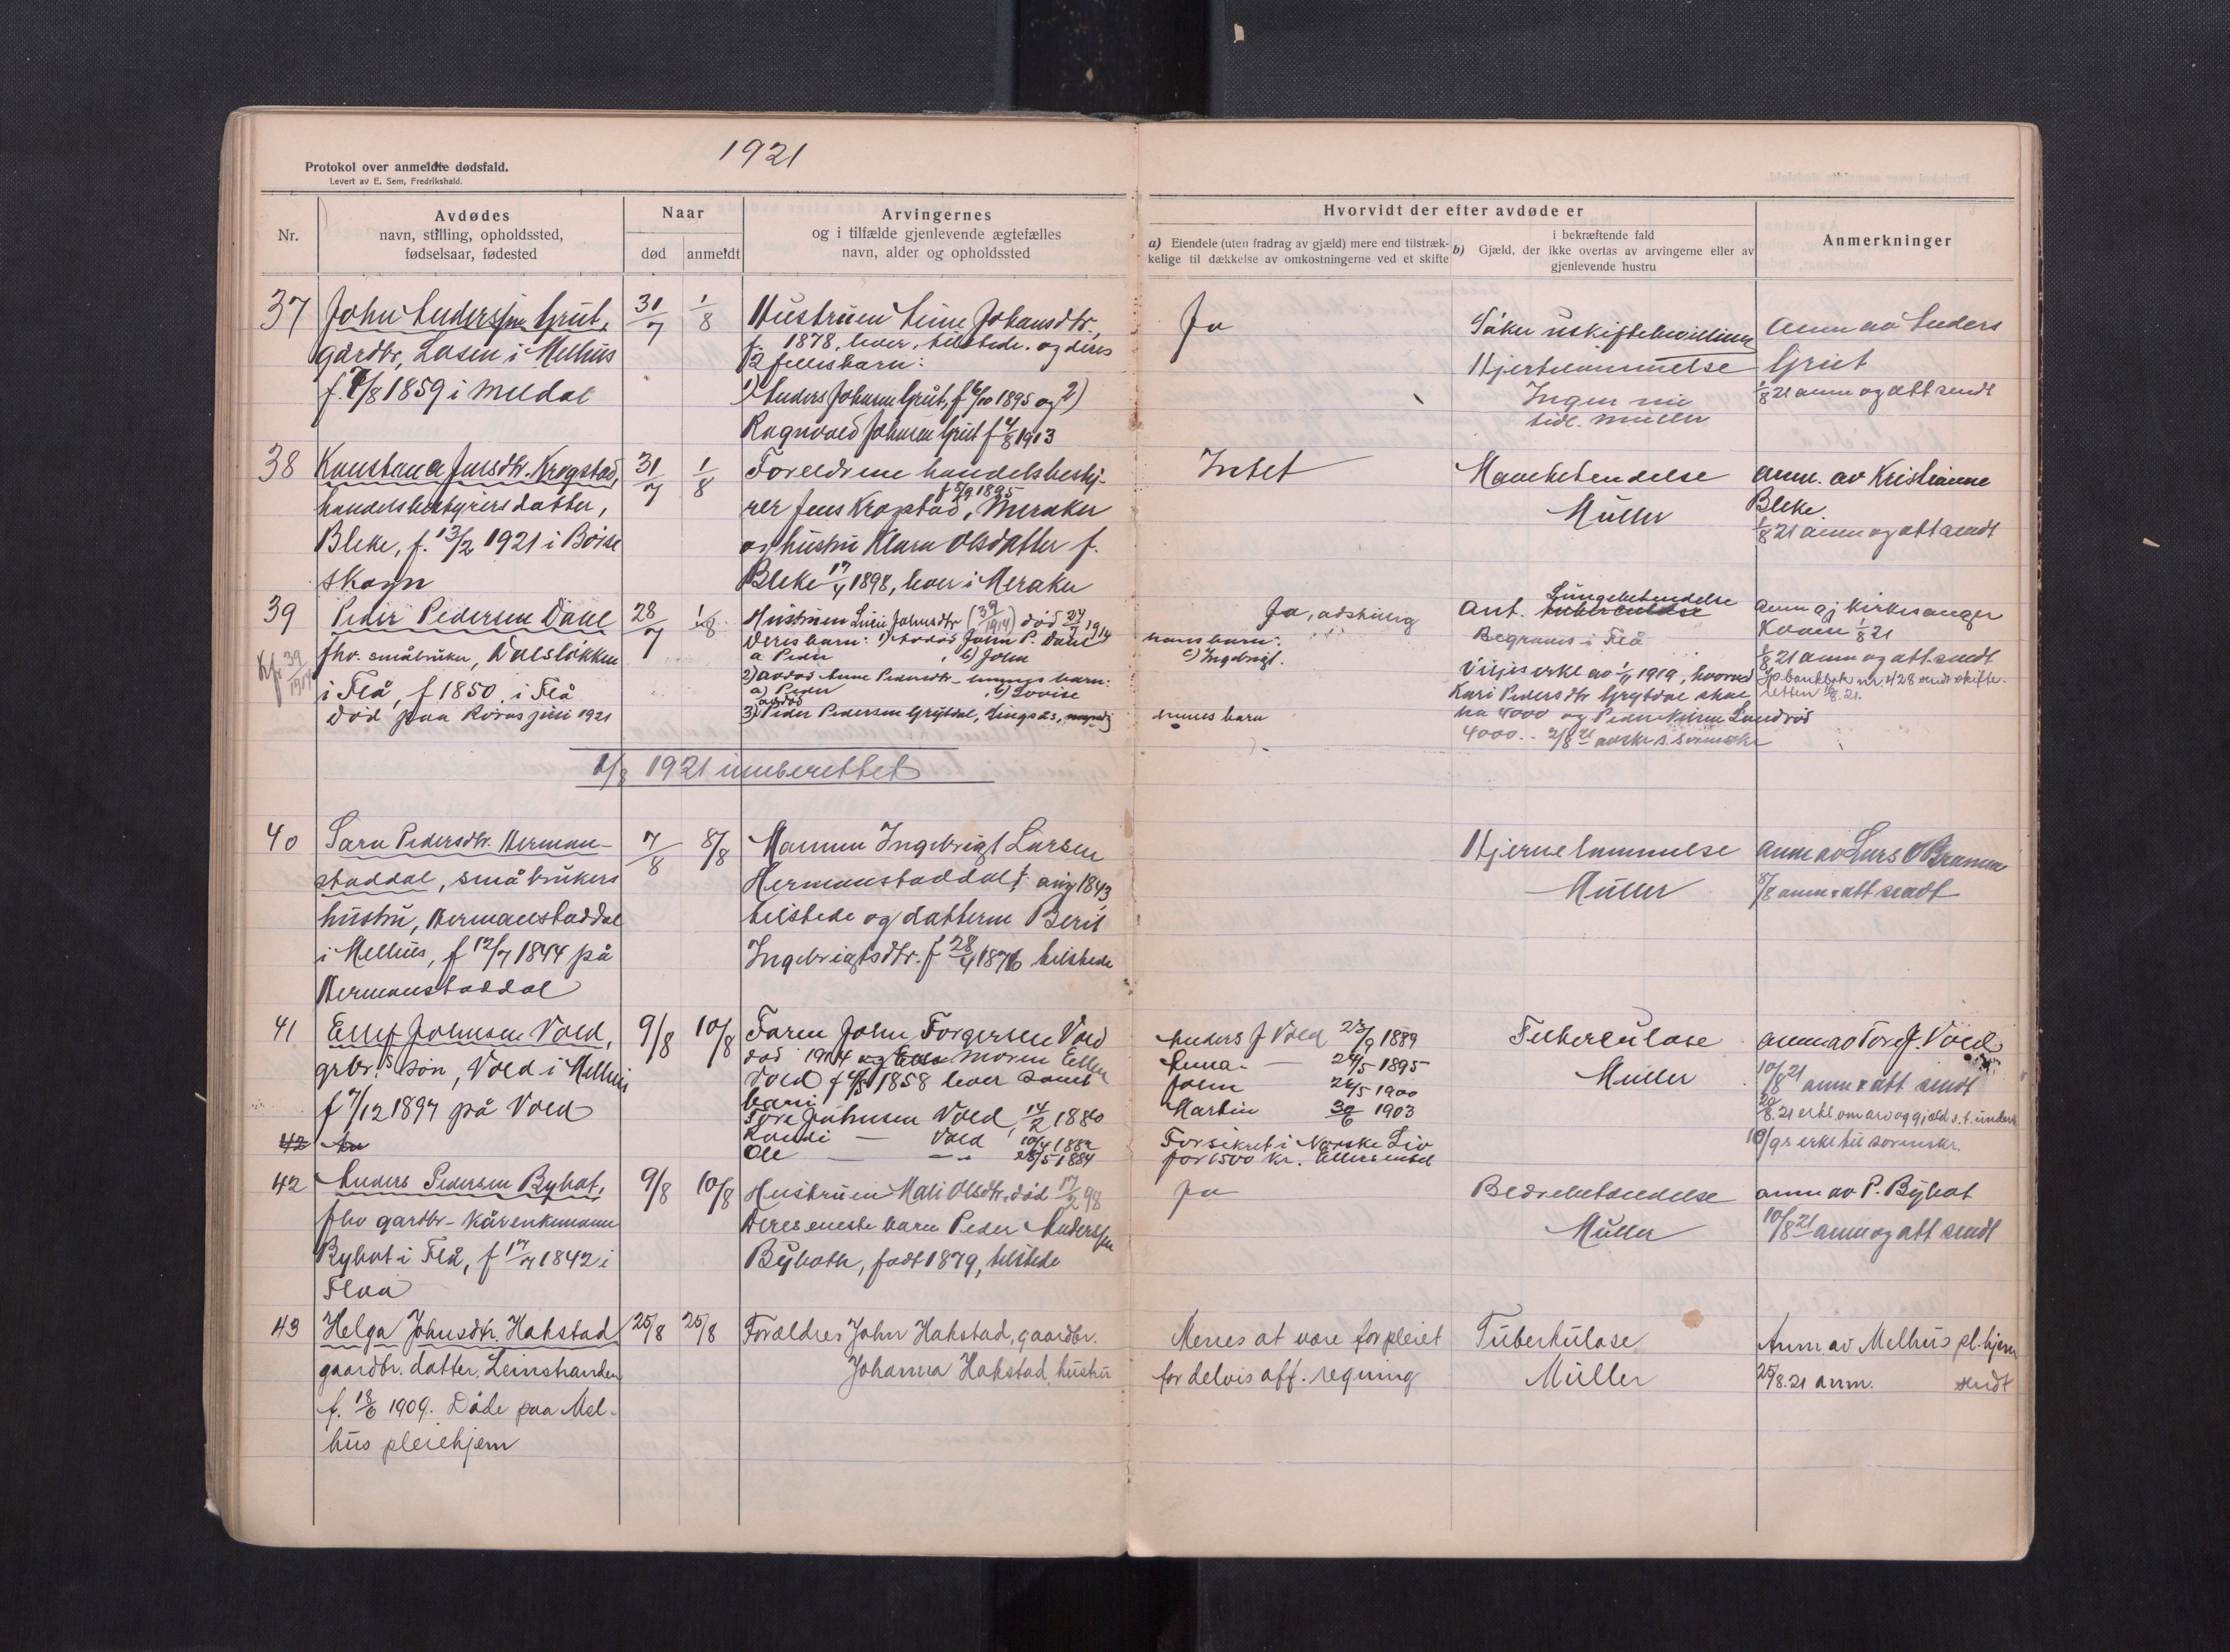 1921
Protokol over anmeldte dødsfald.
Levert av E. Sem, Fredrikshald.
Nr.
Avdødes
navn, stilling, opholdssted,
fødselsaar, fødested
Naar
død
anmeldt
Arvingernes
og i tilfælde gjenlevende ægtefælles
navn, alder og opholdssted
Hvorvidt der efter avdøde er
a) Eiendele (uten fradrag av gjæld) mere end tilstræk-
kelige til dækkelse av omkostningerne ved et skifte
i bekræftende fald
b) Gjæld, der ikke overtas av arvingerne eller av
gjenlevende hustru
Anmerkninger
37
John Anderssen Grut,
gårdbr, Losen i Melhus
f. 7/8 1859 i Meldal
31/7
1/8
Hustruen Johansdtr,
f. 1878, lever, tilstede. og deres
2 fellesbarn:
1) Anders Johnsen Grut, f 6/10 1895 og 2)
Ragnvald Johnsen Grut f 4/8 1913
Ja
Søker uskiftebevilling
Hjertelammelse
Ingen
Müller
Anm av Anders
Grut
1/8 21 anm og att sendt
38
Konstana Jensdtr. Krogstad,
handelsbestyrers datter,
Bleke, f. 13/2 1921 i Börse
skogn
31/7
1/8
Foreldrene handelsbesty-
rer Jens Krogstad, f 5/9 1895 Meraker
og hustru Klara Olsdatter f.
Bleke 17/4 1898, lever i Meraker
Intet
Mavebetendelse
Müller
anm. av Kristianne
Bleke.
1/8 21 anm og att sendt
39
Kfr 39/1914
Peder Pedersen Dahl
fhv. småbruker, Dalsløkken
i Flå, f 1850 i Flå
død paa Röros juli 1921
28/7
1/8
Hustruen Johnsdtr (39/1914) død 27/7 1914
Deres barn: 1) avdød John P. Dahl
hans barn:
a Peder, b) John
c) Ingebrigt.
2) avdød Anne Pedersdtr hennes barn:
a) Peder, b) Lovise
avdød
3) Peder Pedersen Grytdal, Singsås,
hans barn
Ja, adskillig
Ant. Lungebetendelse
Begraves i Flå
Viljeserkl av 1/1 1919, hvorved
Kari Pedersdtr Grytdal skal
ha 4000 og Peder Nilsen Sandrød
4000.
anm gj kirkesanger
Kvam 1/8 21
1/8 21 anm og att. sendt
Sp. bankbok nr. 428 sendt skifte-
retten
1/8 1921 innberettet
40
Sara Pedersdtr. Herman-
staddal, småbrukers
hustru, Hermanstaddal
i Melhus, f 12/7 1844 på
Hermanstaddal
7/8
8/8
Mannen Ingebrigt Larsen
Hermanstaddal, 1843
tilstede og datteren Berit
Ingebrigtsdtr. f 28/4 1876 tilstede
Hjernelammelse
Müller
anm av Lars O Bramen
8/8 anm + att sendt
41
Ellef Johnsen Vold,
grbr.s søn, Vold i Melhus
f 7/12 1897 på Vold
9/8
10/8
Faren John Torgersen Vold
død 1914 moren Ellen
Vold f 1858 lever samt
barn:
Tore Johnsen Vold, 14/2 1880
Randi — Vold 10/4 1882
Ole — 28/5 1884
Anders J Vold 23/9 1889
Anna - 24/5 1895
John 26/5 1900
Martin 30/6 1903
Forsikret i Norske Liv
for 1500 kr. Ellers intet
Tuberculose
Müller
anm av Tore J. Vold
10/8 21 anm + att sendt
20/8.21 erkl. om arv og gjæld s.t. underskr
10/9 s erkl til sorenskr.
42
42
Anders Pedersen Byhat,
fhv gardbr - kårenkemann
Byhat i Flå, f 17/7 1842 i
Flaa
9/8
10/8
Hustruen Mali Olsdtr, død 17/2 98
Deres eneste barn Peder Anderssen
Byhatt, født 1879, tilstede
Ja
Blærebetændelse
Müller
anm av P. Byhat
10/8 21 anm og att sendt
43
Helga Johnsdtr. Hakstad
gaardbr. datter, Leinstranden
f. 18/6 1909. Døde paa Mel-
hus pleiehjem
25/8
25/8
Forældres John Hakstad, gaardbr.
Johanna Hakstad, hustru
Menes at være forpleiet
for delvis off. regning
Tuberkulose
Müller
Anm. av Melhus pl.hjem
25/8.21 anm. sendt